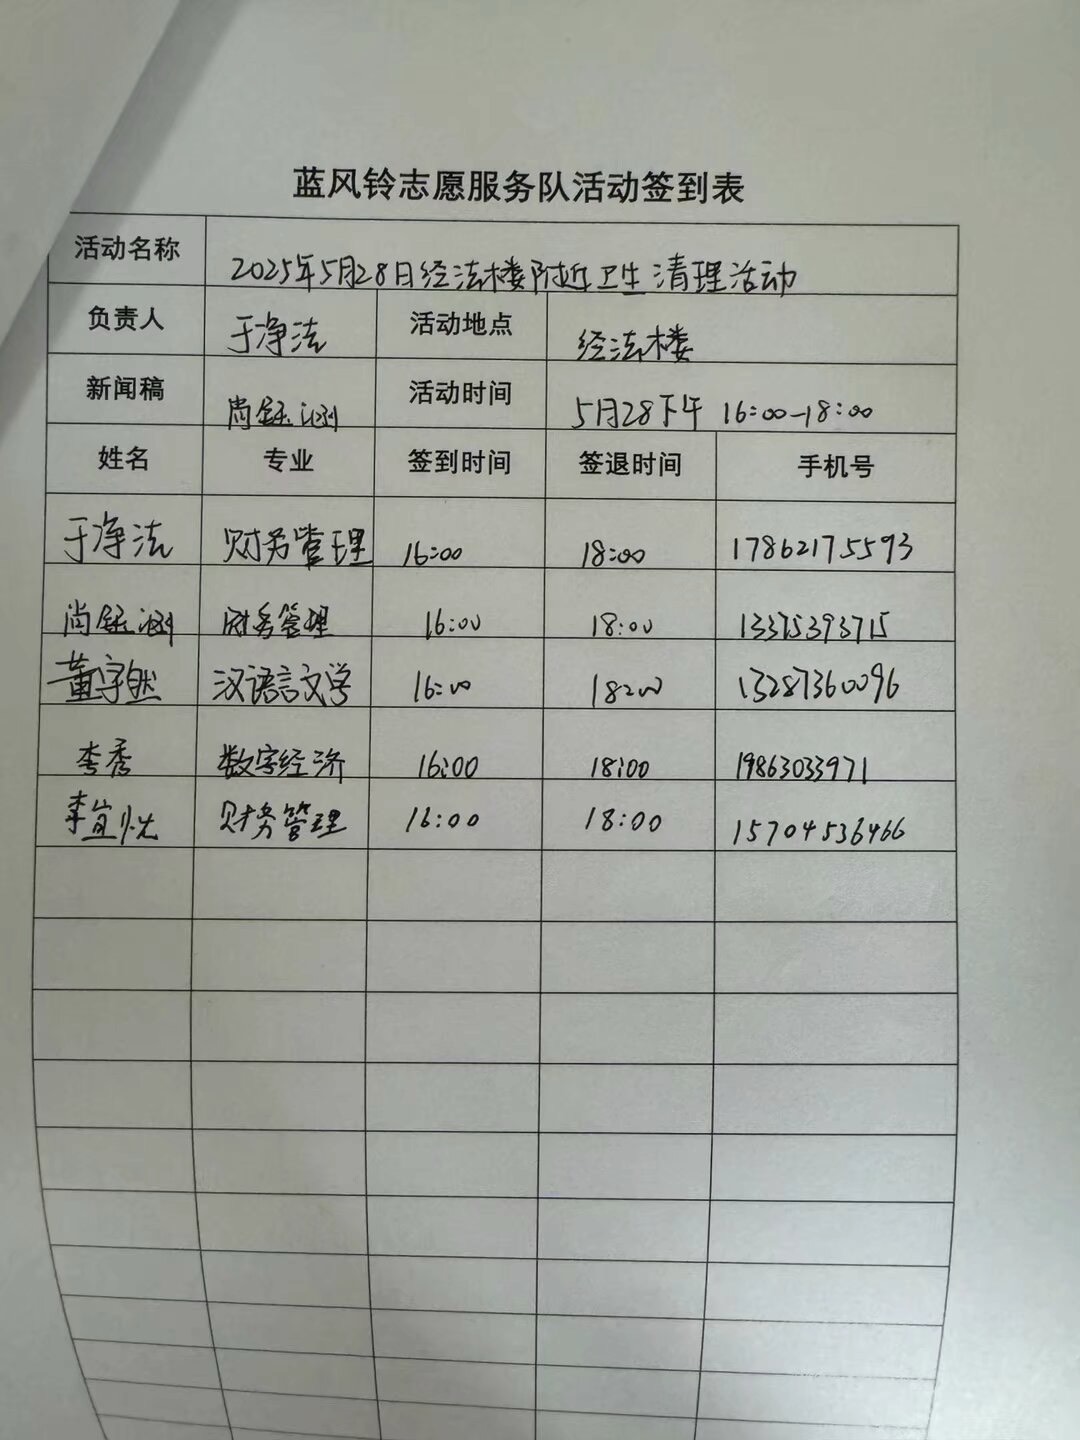 蓝风铃志愿服务队活动签到表
活动名称 2025年5月28日经法楼附近卫生清理活动
负责人 于净法 活动地点 经法楼
新闻稿 尚钰渊 活动时间 5月28下午 16:00-18:00
姓名 专业 签到时间 签退时间 手机号
于净法 财务管理 16:00 18:00 17862175593
尚钰渊 财务管理 16:00 18:00 13375393715
董宇然 汉语言文学 16:00 18:00 13287360096
李秀 数字经济 16:00 18:00 19863033971
李宜悦 财务管理 16:00 18:00 15704536466